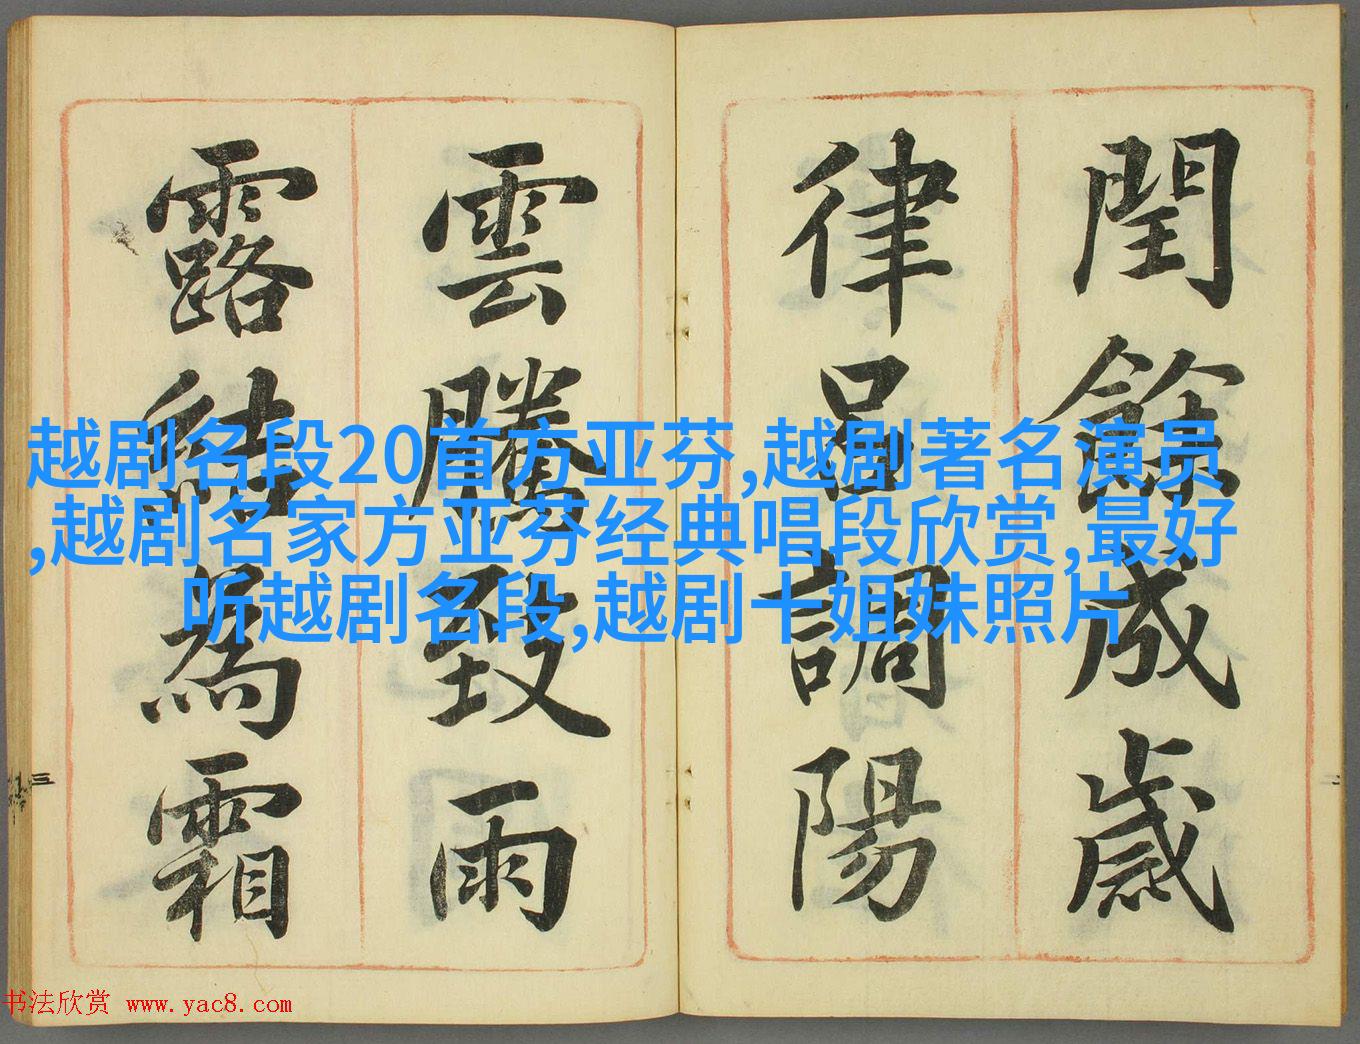 閏餘成歲
律呂調陽
雲騰致雨
露結為霜
越剧名段20首方亚芬,越剧著名演员
,越剧名家方亚芬经典唱段欣赏,最好
听越剧名段,越剧十姐妹照片
三
二
书法欣赏 www.yac8.com